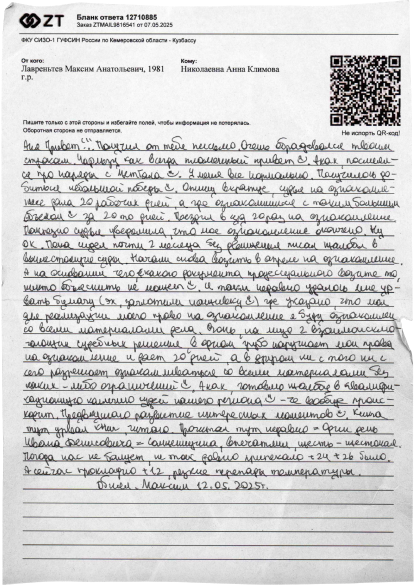 ZT
Бланк ответа 12710885
Заказ ZTMAIL9816541 от 07.05.2025
ФКУ СИЗО-1 ГУФСИН России по Кемеровской области - Кузбассу
От кого:
Лаврентьев Максим Анатольевич, 1981 г.р.
Кому:
Николаевна Анна Климова
Пишите только с этой стороны и избегайте полей, чтобы информация не потерялась.
Оборотная сторона не отправляется.
Не испорть QR-код!
Аня Привет! Получил от тебя письмо, Очень обрадовался твоим
строкам. Чарльзу как всегда пламенный привет
про наряды с У меня все нормально. Получилось до-
биться небольшой победы Опишу вкратце, судья на ознакомле-
ние дала 20 рабочих дней, а где ознакомишься с таким большим
объемом за 20 то дней. Возили в суд 20 раз на ознакомление
судья уведомила что мое ознакомление окончено. Ну
ок. Пока сидел почти 2 месяца без движения писал жалобы в
вышестоящие суды. Начали снова возить в апреле на ознакомление.
А на основании чего какого документа процессуального возите то
никто объяснить не может И таки недавно удалось мне ур-
вать бумагу где указано что мол
для реализации моего права на ознакомление я буду ознакомлен
со всеми материалами дела. на лицо 2 взаимоискл-
ючающие судебные решения в одном грубо нарушает мои права
на ознакомление и дает 20 дней, а в другом ни с того ни с
сего разрешает ознакамливаться со всеми материалами без
каких-либо ограничений А как, готовлю жалобу в квалифи-
кационную коллегию судей нашего региона че вообще проис-
ходит. развитие интересных моментов Книги
тут читаю. Прочитал тут недавно "Один день
Ивана Денисовича" - Солженицина, впечатлили, жесть - жестокая
Погода нас не балует, не так давно припекало +24 +26 было.
А сейчас прохладно +12, резкие перепады температуры.
Максим 12.05.2025г.